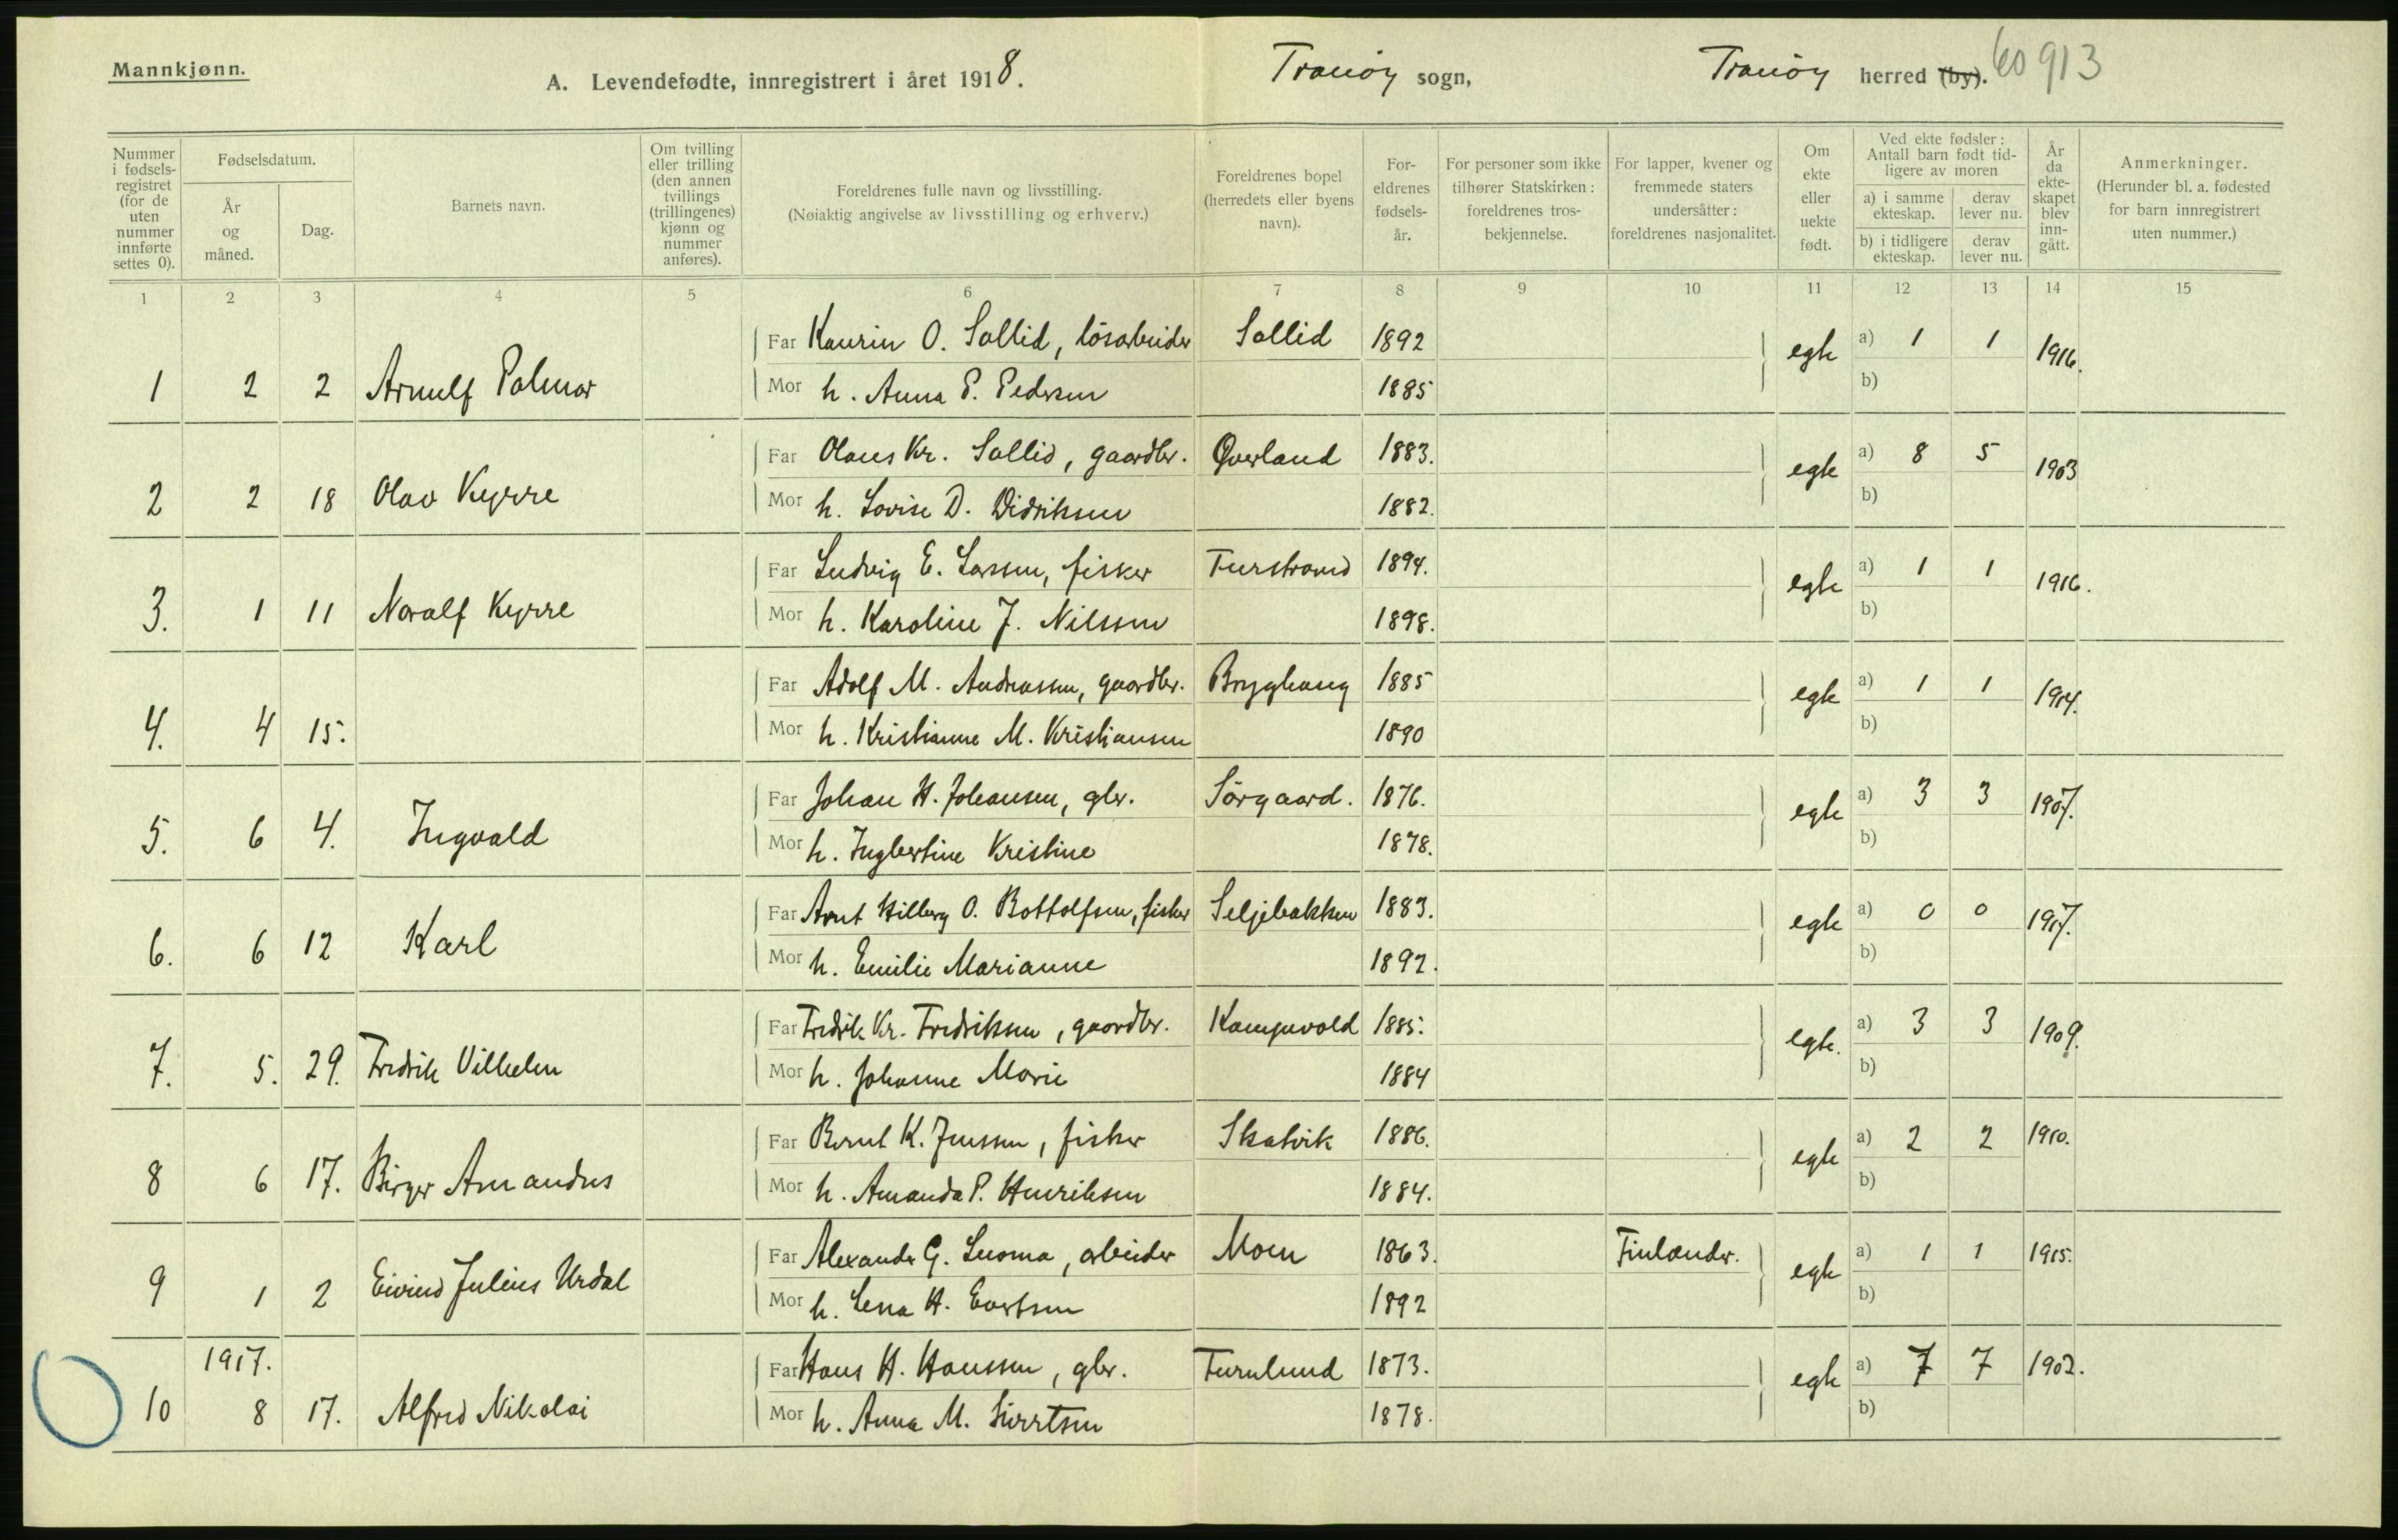 Mannkjønn.
A. Levendefødte, innregistrert i året 1918. Tranöy sogn, Tranöy herred (by). 60913
Nummer i fødsels-registret (for de uten nummer innførte settes 0).
Fødselsdatum.
År og måned.
Dag.
Barnets navn.
Om tvilling eller trilling (den annen tvillings (trillingenes) kjønn og nummer anføres).
Foreldrenes fulle navn og livsstilling.
(Nøiaktig angivelse av livsstilling og erhverv.)
Foreldrenes bopel (herredets eller byens navn).
For-eldrenes fødsels-år.
For personer som ikke tilhører Statskirken: foreldrenes tros-bekjennelse.
For lapper, kvener og fremmede staters undersåtter: foreldrenes nasjonalitet.
Om ekte eller uekte født.
Ved ekte fødsler: Antall barn født tid-ligere av moren
a) i samme ekteskap. derav lever nu.
b) i tidligere ekteskap. derav lever nu.
År da ekte-skapet blev inn-gått.
Anmerkninger.
(Herunder bl. a. fødested for barn innregistrert uten nummer.)
1 2 3 4 5 6 7 8 9 10 11 12 13 14 15
Far Kaurin O. Sollid, lösarbeider Sollid 1892 egte a) 1 1 1916.
1 2 2 Arnulf Palmar Mor h. Anna P. Pedersen 1885 b)
Far Olaus Kr. Sollid, gaardbr. Överland 1883. egte a) 8 5 1903
2 2 18 Olav Kyrre Mor h. Lovise D. Didriksen 1882. b)
Far Ludvig E. Larssen, fisker Furstrand 1894. egte a) 1 1 1916.
3. 1 11 Noralf Kyrre Mor h. Karoline J. Nilssen 1898. b)
Far Adolf M. Andreassen, gaardbr. Bryghaug 1885 egte a) 1 1 1914.
4. 4 15. Mor h. Kristianne M. Kristiansen 1890 b)
Far Johan H. Johansen, gbr. Sörgaard. 1876. egte a) 3 3 1907.
5. 6 4. Ingvald Mor h. Ingbertine Kristine 1878. b)
Far Arnt Hilberg O. Bottolfsen, fisker Seljebakken 1883. egte a) 0 0 1917.
6. 6 12 Karl Mor h. Emilie Marianne 1892. b)
Far Fredrik Kr. Fredriksen, gaardbr. Kampevold 1885. egte. a) 3 3 1909.
7. 5. 29. Fredrik Vilhelm Mor h. Johanne Marie 1884 b)
Far Bernt K. Jenssen, fisker Skatvik 1886. egte a) 2 2 1910.
8 6 17. Birger Amandus Mor h. Amanda P. Henriksen 1884. b)
Far Alexander G. Luoma, arbeider Moen 1863. Finlænder. egte a) 1 1 1915.
9 1 2 Eivind Julius Urdal Mor h. Lena H. Evertsen 1892 b)
1917. Far Hans H. Hanssen, gbr. Furulund 1873. egte a) 7 7 1902.
10 8 17. Alfred Nikolai Mor h. Anna M. Sivertsen 1878. b)